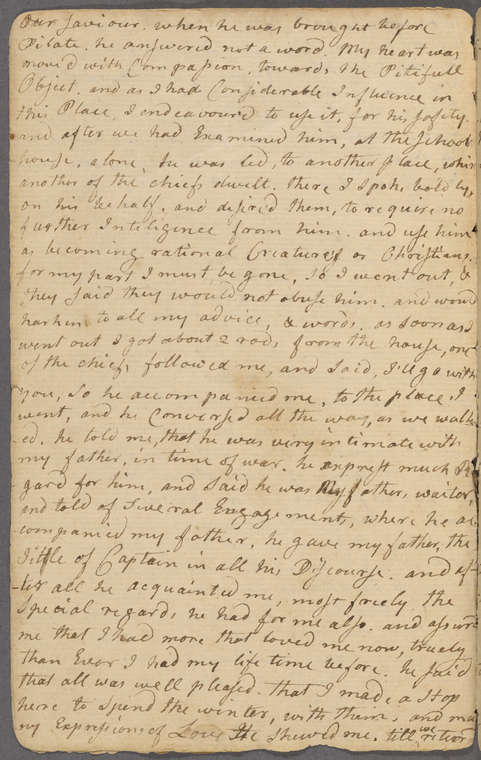 Our Saviour. when he was brought before
Pilate. he answered not a word. My heart was
moved with Compassion, towards the Pitifull
Object. and as I had Considerable Influence in
this Place, I endeavoured to use it, for his safety.
and after we had Examined him, at the School
house, alone, he was led, to another place, where
another of the chiefs dwelt. there I spoke boldly,
on his behalf, and desired them, to require no
further Inteligence from him. and use him
as becoming rational Creatures or Christians.
for my part I must be gone, so I went out, &
they said they would not abuse him. and would
harken to all my advice, & words. as soon as I
went out I got about 2 rods, from the house, one
of the chiefs followed me, and said, I'll go with
you, So he accompanied me, to the place, I
went, and he Conversed all the way, as we walk
ed. he told me, that he was very intimate with
my father, in time of war. he exprest much Re
gard for him, and said he was My father, waiter,
and told of Several Engagements, where he ac
companied my father, he gave my father, the
Tittle of Captain in all his Discourse. and af
ter all he acquainted me, most freely, the
Special regards he had for me also. and assured
me that I had more that loved me now, truely
than Ever I had my life time before. he said
that all was well pleased. that I made a stop
here to spend the winter, with them, and ma
ny Expressions of Love He shewed me. till we return